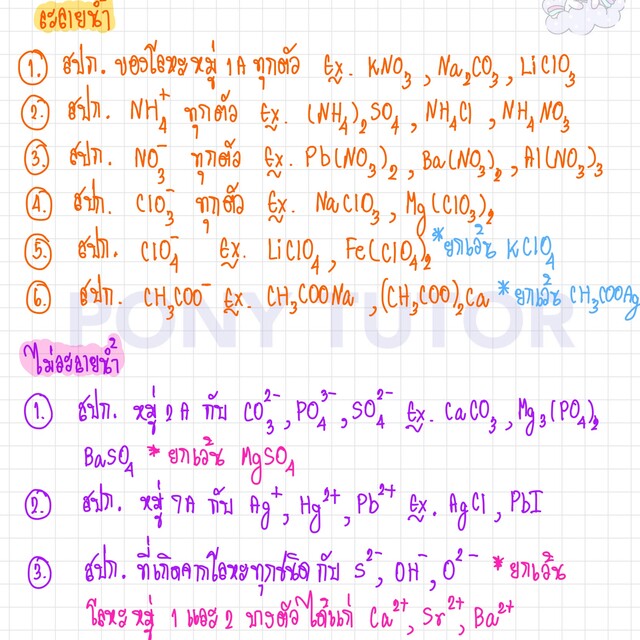 ละลายน้ำ
1. สปก. ของโลหะหมู่ 1A ทุกตัว Ex. KNO₃, Na₂CO₃, LiClO₃
2. สปก. NH₄⁺ ทุกตัว Ex. (NH₄)₂SO₄, NH₄Cl, NH₄NO₃
3. สปก. NO₃⁻ ทุกตัว Ex. Pb(NO₃)₂, Ba(NO₃)₂, Al(NO₃)₃
4. สปก. ClO₃⁻ ทุกตัว Ex. NaClO₃, Mg(ClO₃)₂
5. สปก. ClO₄⁻ Ex. LiClO₄, Fe(ClO₄)₂ *ยกเว้น KClO₄
6. สปก. CH₃COO⁻ Ex. CH₃COONa, (CH₃COO)₂Ca *ยกเว้น CH₃COOAg
PONY TUTOR
ไม่ละลายน้ำ
1. สปก. หมู่ 2A กับ CO₃²⁻, PO₄³⁻, SO₄²⁻ Ex. CaCO₃, Mg₃(PO₄)₂
BaSO₄ *ยกเว้น MgSO₄
2. สปก. หมู่ 7A กับ Ag⁺, Hg²⁺, Pb²⁺ Ex. AgCl, PbI
3. สปก. ที่เกิดจากโลหะทุกชนิด กับ S²⁻, OH⁻, O²⁻ *ยกเว้น
โลหะหมู่ 1 และ 2 บางตัว ได้แก่ Ca²⁺, Sr²⁺, Ba²⁺